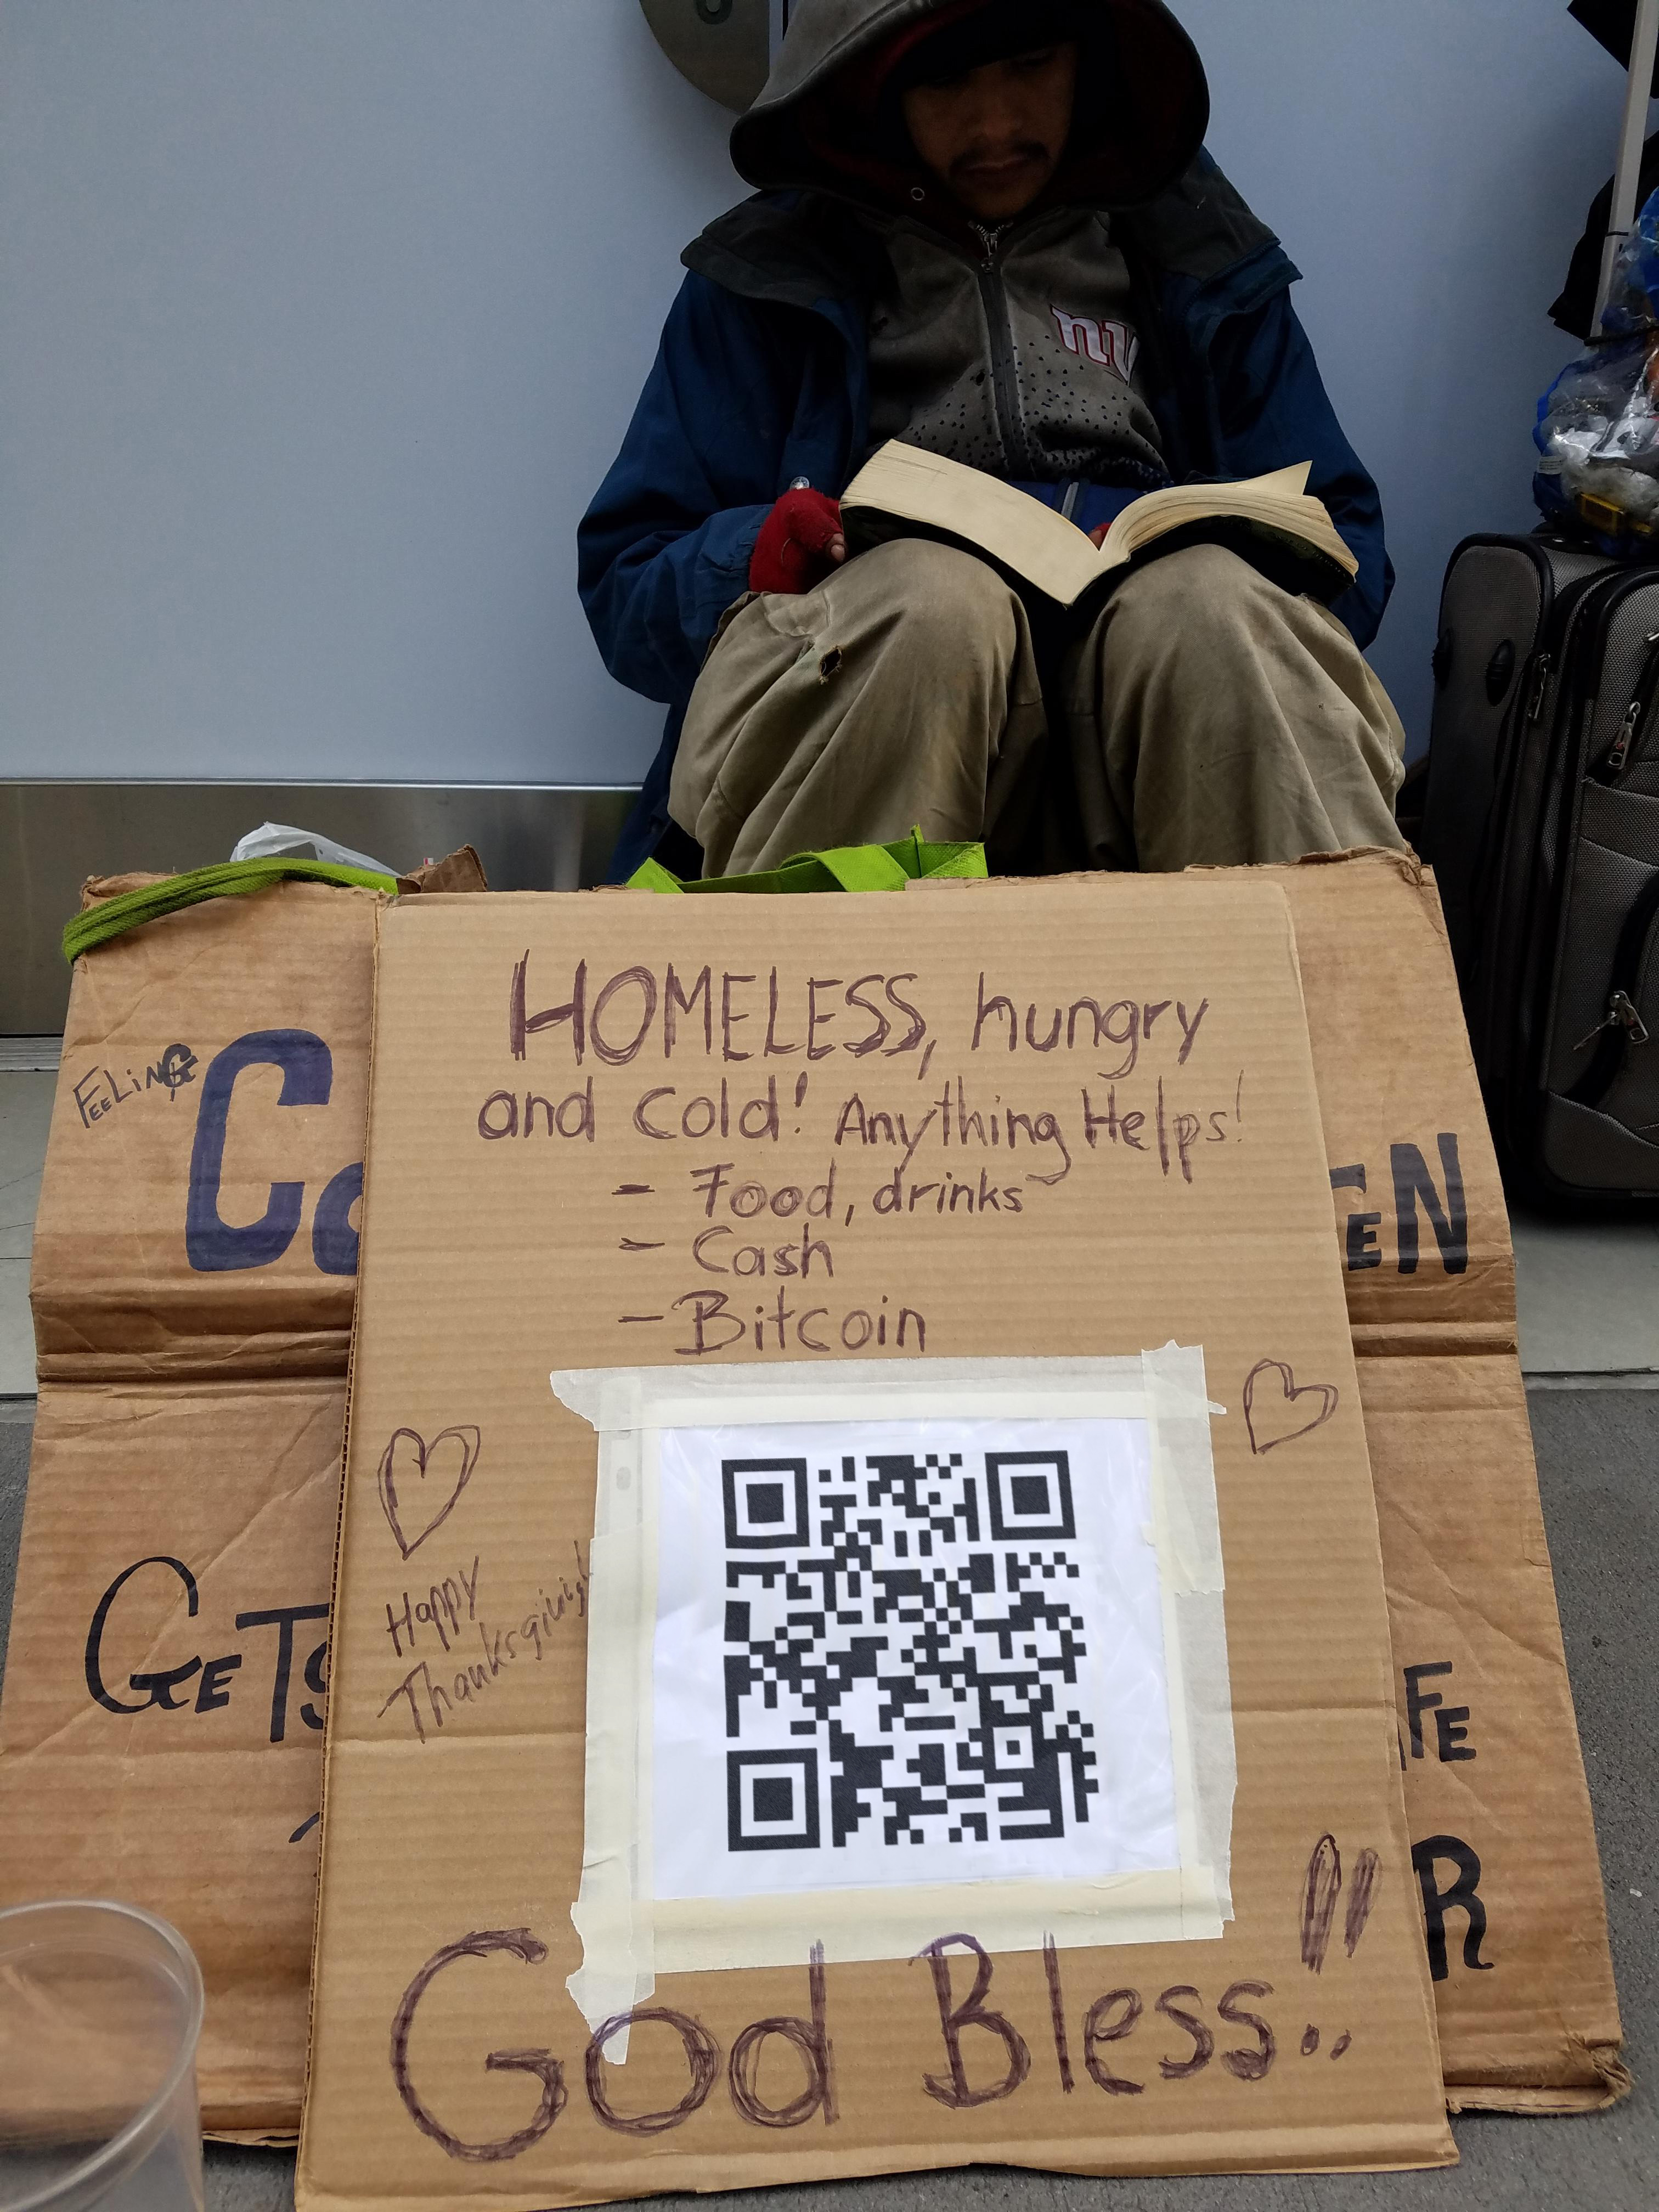 HOMELESS, hungry
and cold! Anything Helps!
- Food, drinks
- Cash
- Bitcoin
Happy
Thanksgiving!
God Bless!!
FEELiNG
GETS
EN
FE
R
ny